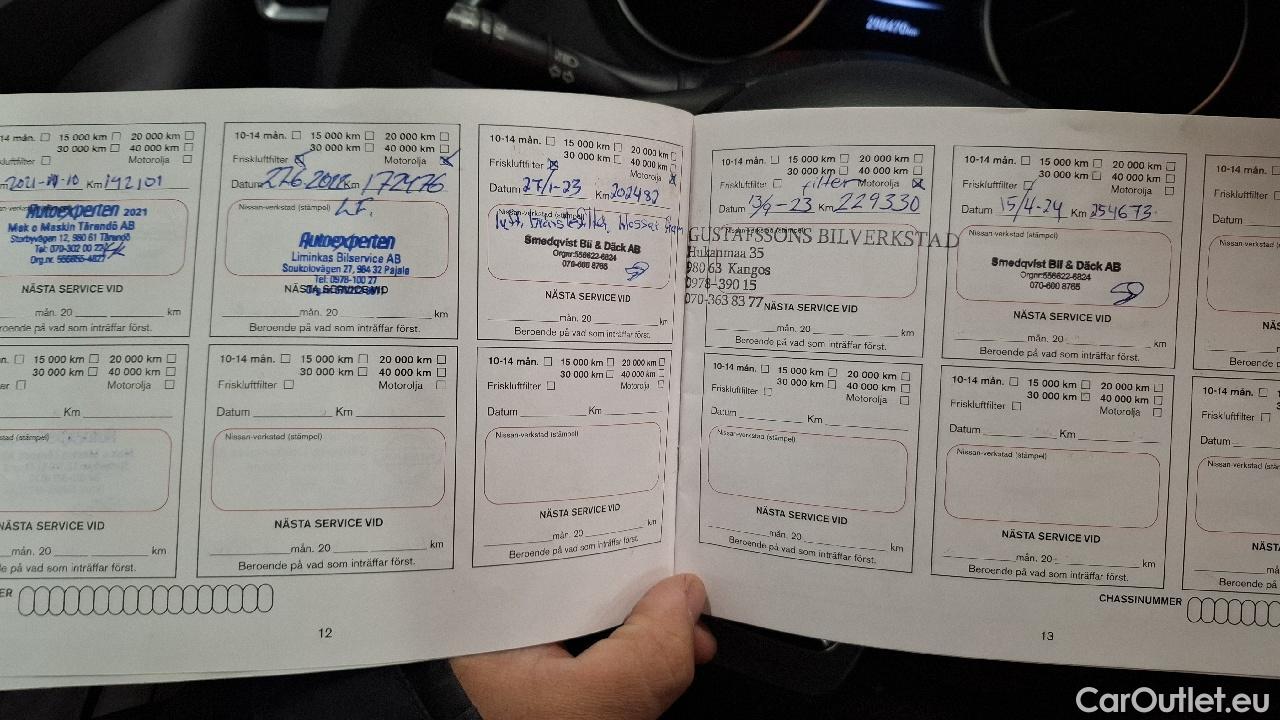 298470km
0-14 mån. 15 000 km 20 000 km
30 000 km 40 000 km
Motorolja
Km 142101
Nissan-verkstad (stämpel)
Autoexperten 2021
Mak o Maskin Tärendö AB
Storbyvägen 12, 980 61 Tärendö
Tel: 070-302 00 22
NÄSTA SERVICE VID
mån. 20 km
Beroende på vad som inträffar först.
10-14 mån. 15 000 km 20 000 km
30 000 km 40 000 km
Friskluftfilter Motorolja
Datum 27.6.2022 Km 172476
Nissan-verkstad (stämpel)
LF.
Autoexperten
Liminkas Bilservice AB
Soukolovägen 27, 984 32 Pajala
Tel: 0978-100 27
NÄSTA SERVICE VID
mån. 20 km
Beroende på vad som inträffar först.
10-14 mån. 15 000 km 20 000 km
30 000 km 40 000 km
Friskluftfilter Motorolja
Datum 27/1-23 Km 202482
Nissan-verkstad (stämpel)
Smedqvist Bil & Däck AB
Orgnr:556622-6824
070-600 8765
NÄSTA SERVICE VID
mån. 20 km
Beroende på vad som inträffar först.
10-14 mån. 15 000 km 20 000 km
30 000 km 40 000 km
Friskluftfilter filter Motorolja
Datum 13/9-23 Km 229330
GUSTAFSSONS BILVERKSTAD
Hukanmaa 35
980 63 Kangos
0978-390 15
070-363 83 77
NÄSTA SERVICE VID
mån. 20 km
Beroende på vad som inträffar först.
10-14 mån. 15 000 km 20 000 km
30 000 km 40 000 km
Friskluftfilter Motorolja
Datum 15/4-24 Km 254673
Nissan-verkstad (stämpel)
Smedqvist Bil & Däck AB
Orgnr:556622-6824
070-600 8765
NÄSTA SERVICE VID
mån. 20 km
Beroende på vad som inträffar först.
10-14 mån.
Friskluftfilter
Datum
Nissan-verkstad
NÄSTA
Beroende på
15 000 km 20 000 km
30 000 km 40 000 km
Motorolja
Km
(stämpel)
NÄSTA SERVICE VID
mån. 20 km
Beroende på vad som inträffar först.
10-14 mån. 15 000 km 20 000 km
30 000 km 40 000 km
Friskluftfilter Motorolja
Datum Km
Nissan-verkstad (stämpel)
NÄSTA SERVICE VID
mån. 20 km
Beroende på vad som inträffar först.
10-14 mån. 15 000 km 20 000 km
30 000 km 40 000 km
Friskluftfilter Motorolja
Datum Km
Nissan-verkstad (stämpel)
NÄSTA SERVICE VID
mån. 20 km
Beroende på vad som inträffar först.
10-14 mån. 15 000 km 20 000 km
30 000 km 40 000 km
Friskluftfilter Motorolja
Datum Km
Nissan-verkstad (stämpel)
NÄSTA SERVICE VID
mån. 20 km
Beroende på vad som inträffar först.
10-14 mån. 15 000 km 20 000 km
30 000 km 40 000 km
Friskluftfilter Motorolja
Datum Km
Nissan-verkstad (stämpel)
NÄSTA SERVICE VID
mån. 20 km
Beroende på vad som inträffar först.
10-14 mån.
Friskluftfilter
Datum
NÄSTA
Beroende på
ER
12
CHASSINUMMER
13
CarOutlet.eu